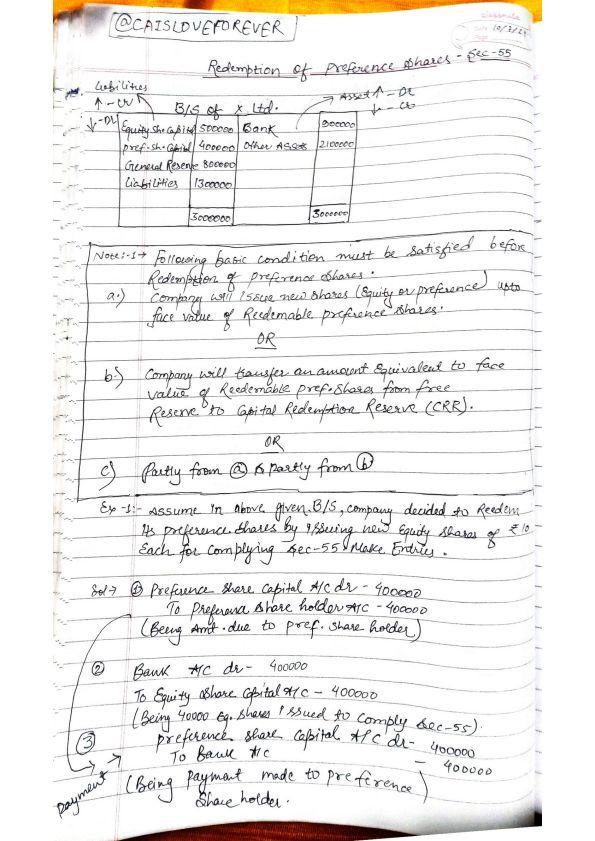 @CAISLOVEFOREVER
classmate
Date 10/3/24
Page
Redemption of Preference Shares - Sec-55
Liabilities
↑ - Cr
↓ - Dr
Asset ↑ - Dr
↓ - Cr
B/S of X Ltd.
Equity Sh. Capital 500000 Bank 900000
Pref. Sh. Capital 400000 Other Assets 2100000
General Reserve 800000
Liabilities 1300000
3000000 3000000
Note:-1→ Following basic condition must be satisfied before
Redemption of preference shares.
a.) Company will issue new shares (Equity or preference) upto
face value of Reedemable preference shares.
OR
b.) Company will transfer an amount Equivalent to face
value of Reedemable pref. shares from free
Reserve to Capital Redemption Reserve (CRR).
OR
c) Partly from ⓐ & partly from ⓑ
Ex-1:- Assume in above given B/S, company decided to Reedem
its preference shares by issuing new Equity shares of ₹10
Each for complying Sec-55. Make Entries.
Sol→ ① Preference share capital A/C dr - 400000
To Preference share holder A/C - 400000
(Being Amt. due to pref. share holder)
② Bank A/C dr - 400000
To Equity share Capital A/C - 400000
(Being 40000 Eq. shares issued to comply Sec-55)
③ preference share capital A/C dr - 400000
To Bank A/C - 400000
payment
(Being payment made to preference
Share holder.)